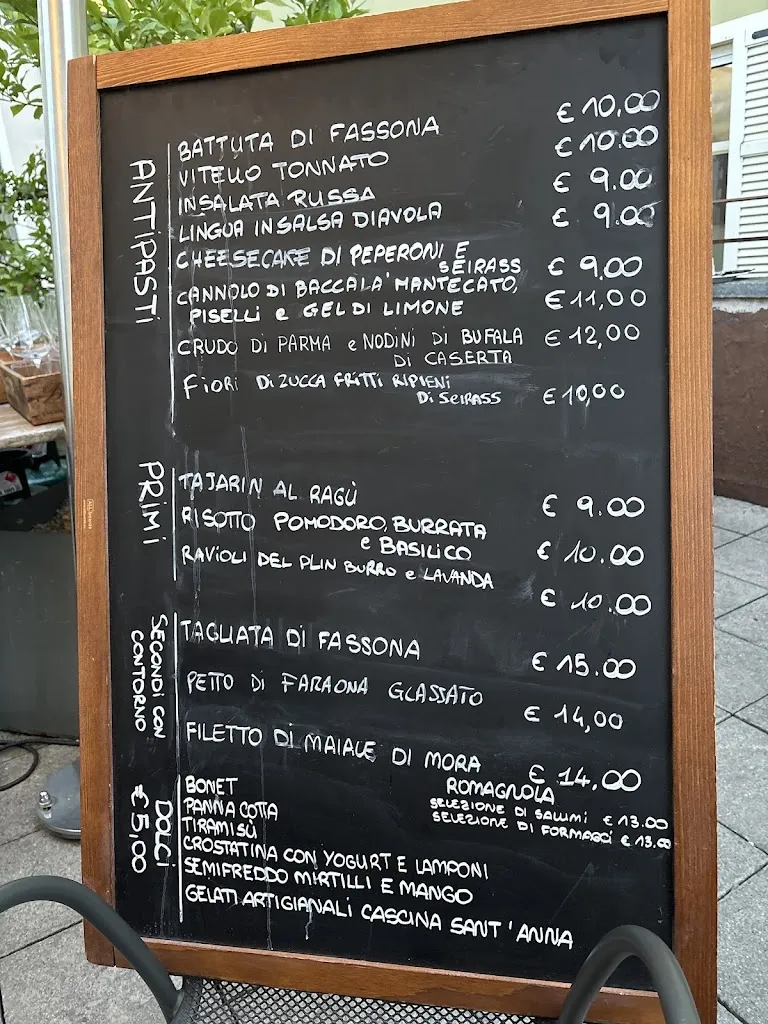 ANTIPASTI
BATTUTA DI FASSONA € 10,00
VITELLO TONNATO € 10.00
INSALATA RUSSA € 9.00
LINGUA IN SALSA DIAVOLA € 9.00
CHEESECAKE DI PEPERONI E
SEIRASS € 9,00
CANNOLO DI BACCALA' MANTECATO,
PISELLI e GEL DI LIMONE € 11,00
CRUDO DI PARMA e NODINI DI BUFALA € 12,00
DI CASERTA
FIORI DI ZUCCA FRITTI RIPIENI
DI SEIRASS € 10,00
PRIMI
TAJARIN AL RAGÙ € 9.00
RISOTTO POMODORO, BURRATA
e BASILICO € 10.00
RAVIOLI DEL PLIN BURRO e LAVANDA
€ 10.00
SECONDI CON
CONTORNO
TAGLIATA DI FASSONA € 15.00
PETTO DI FARAONA GLASSATO € 14,00
FILETTO DI MAIALE DI MORA € 14.00
ROMAGNOLA
SELEZIONE DI SALUMI € 13.00
SELEZIONE DI FORMAGGI € 13.00
DOLCI
€ 5,00
BONET
PANNA COTTA
TIRAMISÙ
CROSTATINA CON YOGURT E LAMPONI
SEMIFREDDO MIRTILLI E MANGO
GELATI ARTIGIANALI CASCINA SANT'ANNA